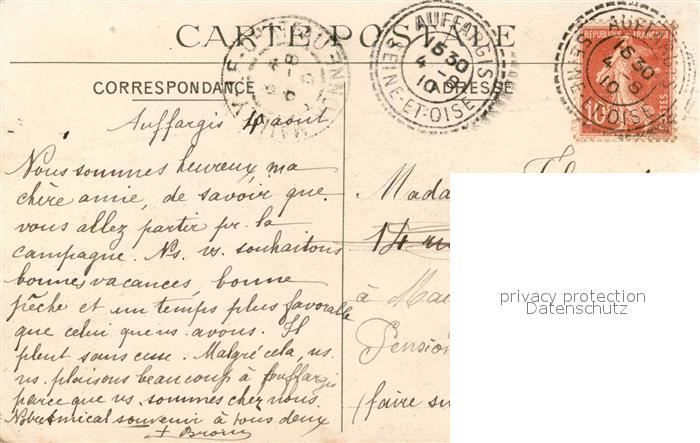 CARTE POSTALE
CORRESPONDANCE
ADRESSE
AUFFARGIS
15 30
4 - 8
10
SEINE-ET-OISE
AUFFARGIS
15 30
4 - 8
10
SEINE OISE
REPUBLIQUE FRANÇAISE
10
POSTES
Auffargis 4 aout
Nous sommes heureux, ma
chère amie, de savoir que
vous allez partir pr. la
campagne. Ns. vs. souhaitons
bonnes vacances, bonne
pêche et un temps plus favorable
que celui que ns. avons. Il
pleut sans cesse. Malgré cela, ns.
ns. plaisons beaucoup à Auffargis
parce que ns. sommes chez nous.
amical souvenir à tous deux
Mada
14
à
Pension
(faire su
privacy protection
Datenschutz